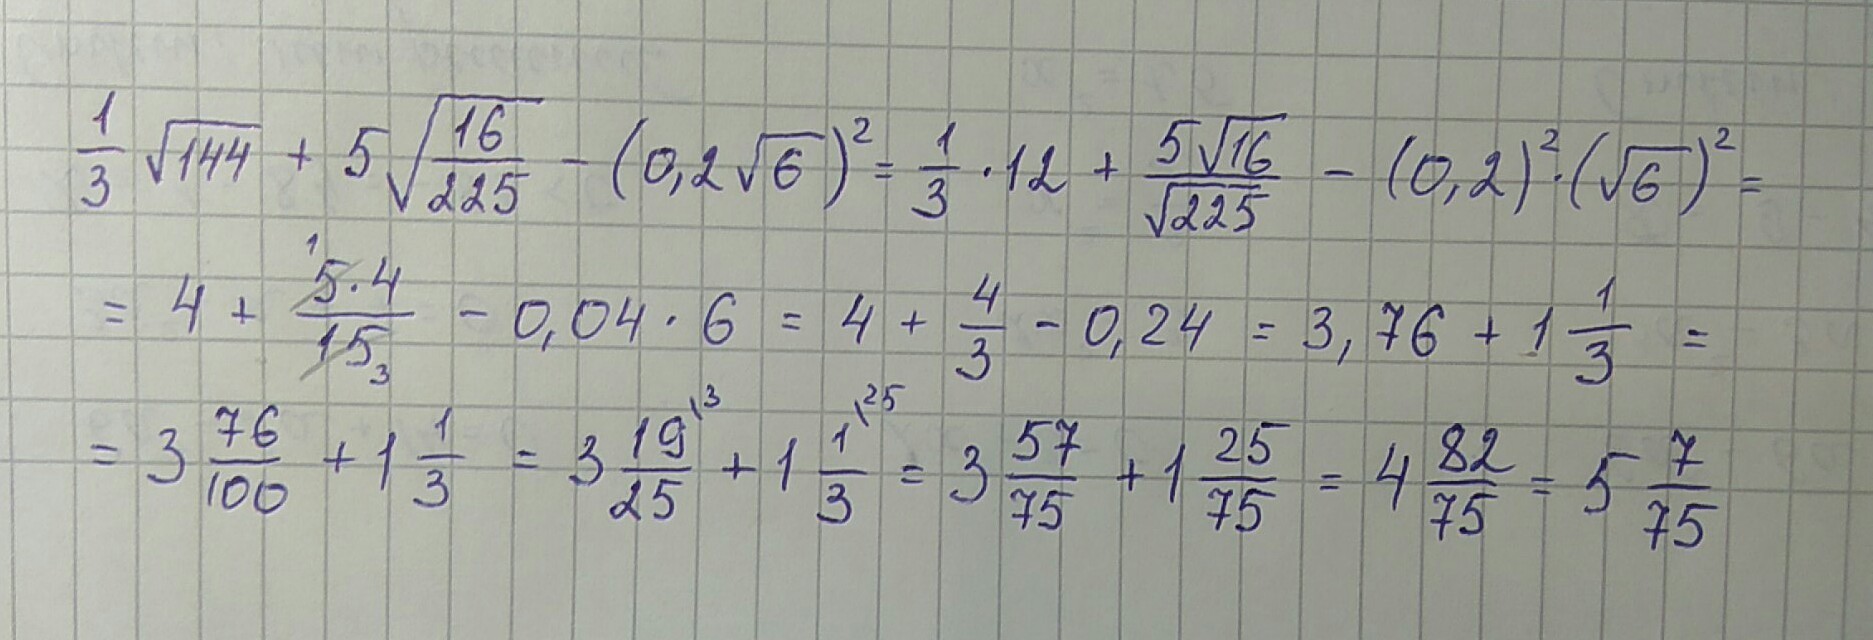 1/3 √144 + 5√(16/225) - (0,2√6)² = 1/3 · 12 + 5√16/√225 - (0,2)² · (√6)² =
= 4 + ¹5·4/15₃ - 0,04 · 6 = 4 + 4/3 - 0,24 = 3,76 + 1 1/3 =
= 3 76/100 + 1 1/3 = 3 19/25 \³ + 1 1/3 \²⁵ = 3 57/75 + 1 25/75 = 4 82/75 = 5 7/75